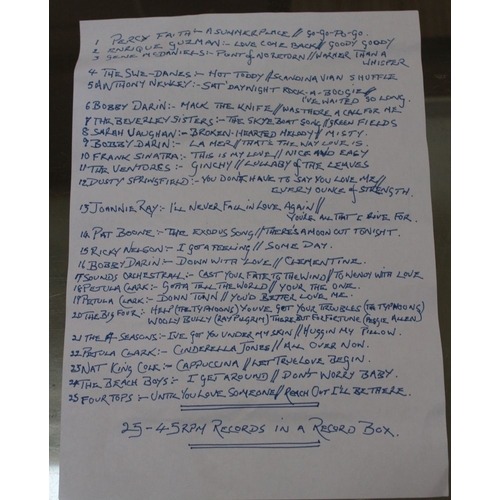 1 PERCY FAITH - A SUMMER PLACE // GO-GO-PO-GO.
2 ENRIQUE GUZMAN:- LOVE COME BACK // GOODY GOODY
3 GENE MCDANIELS:- POINT OF NO RETURN // WARMER THAN A
WHISPER
4 THE SWE-DANES:- HOT TEDDY // SCANDINAVIAN SHUFFLE
5 ANTHONY NEWLEY:- SAT DAY NIGHT ROCK-A-BOOGIE //
I'VE WAITED SO LONG.
6 BOBBY DARIN:- MACK THE KNIFE // WAS THERE A CALL FOR ME
7 THE BEVERLEY SISTERS:- THE SKYE BOAT SONG // GREEN FIELDS
8 SARAH VAUGHAN:- BROKEN-HEARTED MELODY // MISTY.
9 BOBBY DARIN:- LA MER // THAT'S THE WAY LOVE IS.
10 FRANK SINATRA:- THIS IS MY LOVE // NICE AND EASY
11 THE VENTURES:- GINCHY // LULLABY OF THE LEAVES
12 DUSTY SPRINGFIELD:- YOU DON'T HAVE TO SAY YOU LOVE ME //
EVERY OUNCE OF STRENGTH.
13 JOHNNIE RAY:- I'LL NEVER FALL IN LOVE AGAIN //
YOU'RE ALL THAT I LIVE FOR.
14 PAT BOONE:- THE EXODUS SONG // THERE'S A MOON OUT TONIGHT.
15 RICKY NELSON:- I GOT A FEELING // SOME DAY.
16 BOBBY DARIN:- DOWN WITH LOVE // CLEMENTINE.
17 SOUNDS ORCHESTRAL:- CAST YOUR FATE TO THE WIND // TO WENDY WITH LOVE
18 PETULA CLARK:- GOTTA TELL THE WORLD // YOUR THE ONE.
19 PETULA CLARK:- DOWN TOWN // YOU'D BETTER LOVE ME.
20 THE BIG FOUR:- HELP (THE TYPHOONS) YOU'VE GOT YOUR TROUBLES (THE TYPHOONS)
WOOLY BULLY (RAY PILGRIM) THERE BUT FOR FORTUNE (PEGGIE ALLEN)
21 THE 4-SEASONS:- I'VE GOT YOU UNDER MY SKIN // HUGGIN MY PILLOW.
22 PETULA CLARK:- CINDERELLA JONES // ALL OVER NOW.
23 NAT KING COLE:- CAPPUCCINA // LET TRUE LOVE BEGIN.
24 THE BEACH BOYS:- I GET AROUND // DON'T WORRY BABY.
25 FOUR TOPS:- UNTIL YOU LOVE SOMEONE // REACH OUT I'LL BE THERE.
25-45RPM RECORDS IN A RECORD BOX.